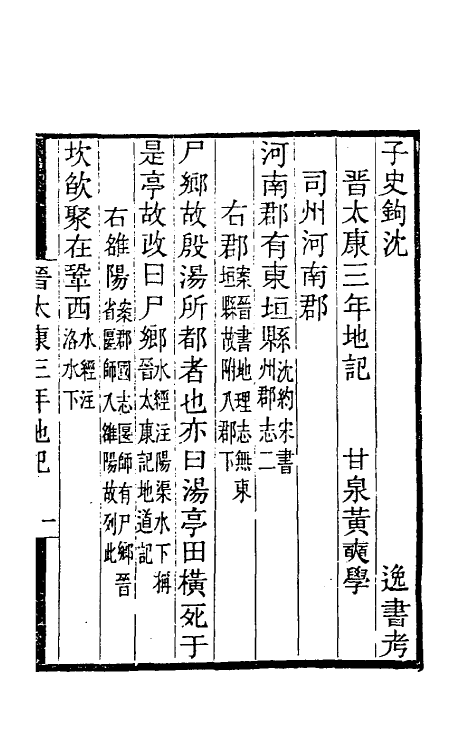 子史鉤沈 逸書考
晉太康三年地記 甘泉黃奭學
司州河南郡
河南郡有東垣縣沈約宋書州郡志二
右郡案晉書地理志無東垣縣故附入郡下
尸鄉故殷湯所都者也亦曰湯亭田橫死于
是亭故改曰尸鄉水經注陽渠水下稱晉太康記地道記
右雒陽案郡國志匽師有尸鄉晉省匽師入雒陽故列此
坎欿聚在鞏西水經注洛水下
晉太康三年地記 一